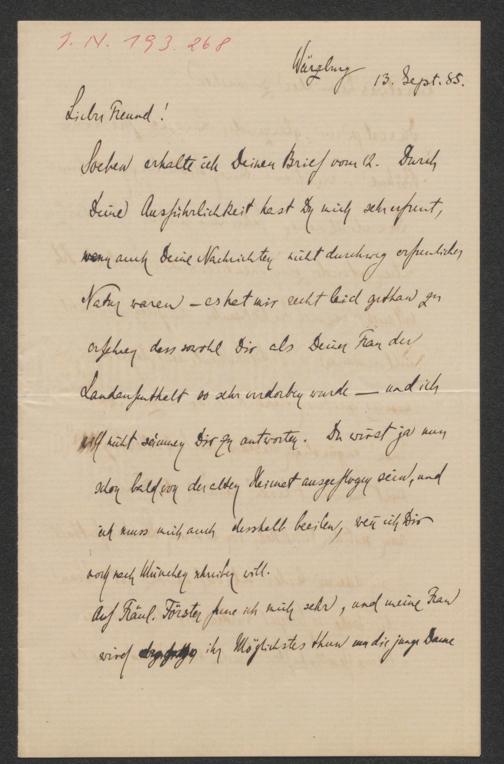 J. N. 193.268
Würzburg 13. Sept. 85.
Lieber Freund!
Soeben erhalte ich Deinen Brief vom 12. Durch
Deine Ausführlichkeit hast Du mich sehr erfreut,
wenn auch Deine Nachrichten nicht durchweg erfreulicher
Natur waren – es hat mir recht leid gethan zu
erfahren dass sowohl Dir als Deiner Frau der
Landaufenthalt so sehr verdorben wurde — und ich
will nicht säumen Dir zu antworten. Du wirst ja nun
schon bald von der alten Heimat ausgeflogen sein, und
ich muss mich auch desshalb beeilen, weil ich Dir
noch nach München schreiben will.
Auf Fräul. Förster freue ich mich sehr, und meine Frau
wird ihr Möglichstes thun um die junge Dame